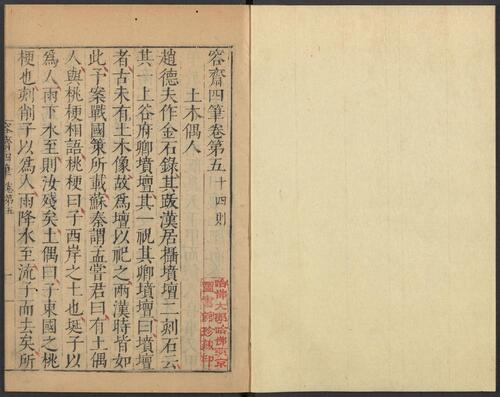 容齋四筆卷第五 十四則
土木偶人
趙德夫作金石錄其跋漢居攝墳壇二刻石云
其一上谷府卿墳壇其一祝其卿墳壇曰墳壇
者古未有土木像故爲壇以祀之兩漢時皆如
此予案戰國策所載蘇秦謂孟嘗君曰有土偶
人與桃梗相語桃梗曰子西岸之土也埏子以
爲人雨下水至則汝殘矣土偶曰子東國之桃
梗也刻削子以爲人雨降水至流子而去矣所
容齋四筆 卷第五
一
哈佛大學哈佛燕京
圖書館珍藏印